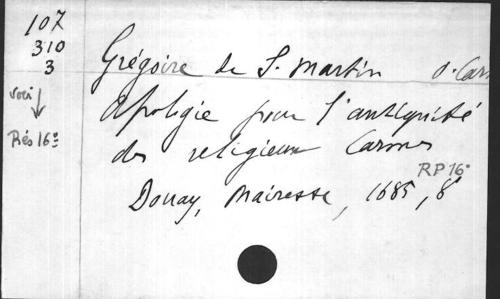 107
310
3
voir
Rés 16º
Grégoire de S. Martin O. Carm
Apologie pour l'antiquité
des religieux Carmes
RP 16º
Douay, Mairesse, 1685, 8º